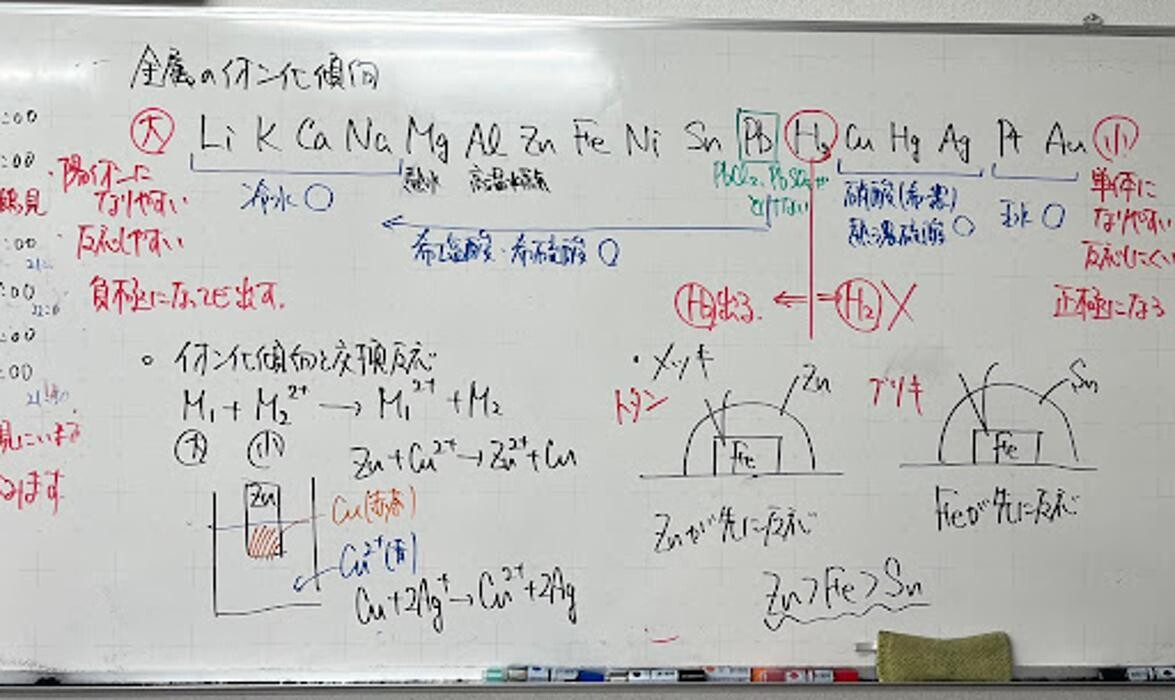 金属のイオン化傾向
大 Li K Ca Na Mg Al Zn Fe Ni Sn Pb H₂ Cu Hg Ag Pt Au 小
・陽イオンになりやすい
・反応しやすい
負極になってe出す。
冷水 ○
熱水
高温水蒸気
希塩酸・希硫酸 ○
PbCl₂、PbSO₄が
とけない
硝酸(希・濃)
熱濃硫酸 ○
王水 ○
単体に
なりやすい
反応しにくい
正極になる
H₂出る. ⇐ ⇒ H₂ X
○ イオン化傾向と交換反応
M₁ + M₂²⁺ → M₁²⁺ + M₂
大 小
Zn + Cu²⁺ → Zn²⁺ + Cu
Zn
Cu(赤春)
Cu²⁺(青)
Cu + 2Ag⁺ → Cu²⁺ + 2Ag
・メッキ
トタン
Zn
Fe
Znが先に反応
ブリキ
Sn
Fe
Feが先に反応
Zn > Fe > Sn
:00
:00
鶴見
:00
:00
:00
:00
見にいます
ります